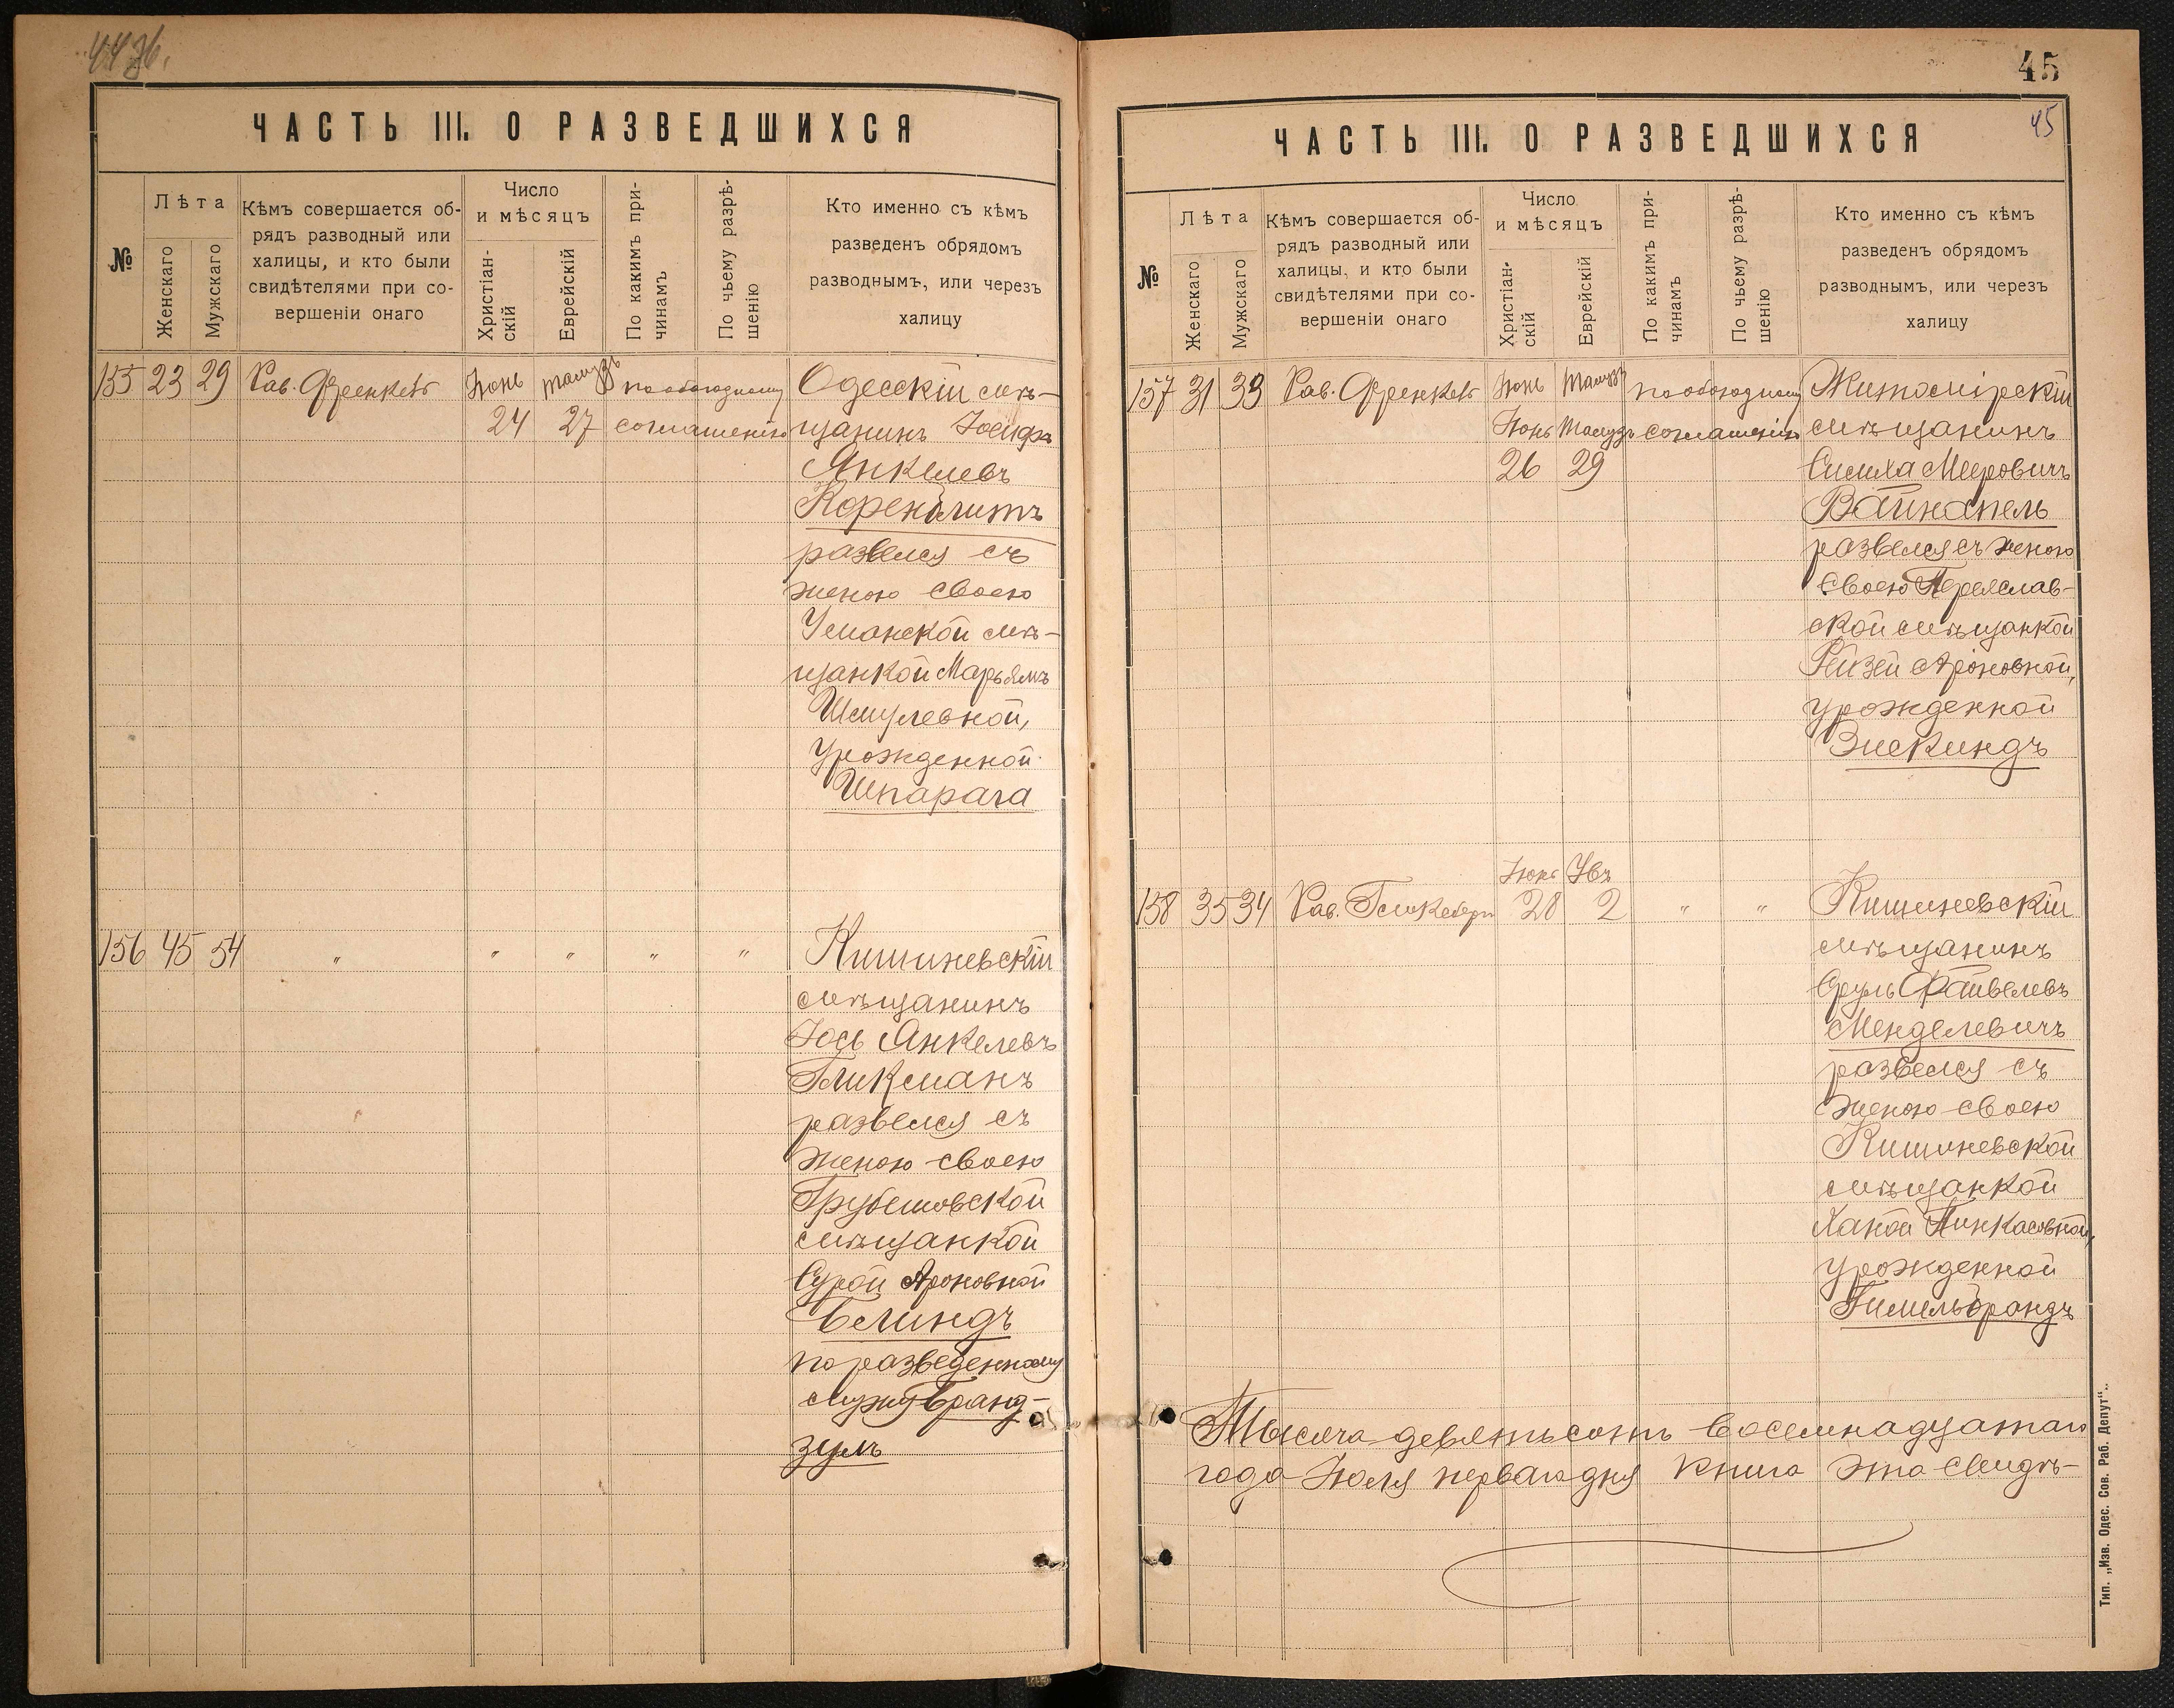 ЧАСТЬ III. О РАЗВЕДШИХСЯ
№
Лѣта
Женскаго
Мужскаго
Кѣмъ совершается об-
рядъ разводный или
халицы, и кто были
свидѣтелями при со-
вершеніи онаго
Число
и мѣсяцъ
Христіан-
скій
Еврейскій
По какимъ при-
чинамъ
По чьему разрѣ-
шенію
Кто именно съ кѣмъ
разведенъ обрядомъ
разводнымъ, или черезъ
халицу
155 23 29 Рав. Френкель Іюнь тамузъ по обоюдному Одесскій мѣ-
24 27 соглашенію щанинъ Іосифъ
Янкелевъ
Коренблитъ
развелся съ
женою своею
Уманской мѣ-
щанкой Марьямъ
Шмулевной,
урожденной
Шпарага
156 45 54 " " " " " Кишиневскій
мѣщанинъ
Іось Янкелевъ
Гликманъ
развелся съ
женою своею
Грубешовской
мѣщанкой
Сурой Ароновной
Блиндъ
по разведенному
мужу Бранд-
зумъ
45
45
ЧАСТЬ III. О РАЗВЕДШИХСЯ
№
Лѣта
Женскаго
Мужскаго
Кѣмъ совершается об-
рядъ разводный или
халицы, и кто были
свидѣтелями при со-
вершеніи онаго
Число
и мѣсяцъ
Христіан-
скій
Еврейскій
По какимъ при-
чинамъ
По чьему разрѣ-
шенію
Кто именно съ кѣмъ
разведенъ обрядомъ
разводнымъ, или черезъ
халицу
157 31 33 Рав. Френкель Іюнь Тамузъ по обоюдному Житомірскій
Іюнь Тамузъ соглашенію мѣщанинъ
26 29 Симха Мееровичъ
Вайнапель
развелся съ женою
своею Переяслав-
ской мѣщанкой
Рейзей Ароновной,
урожденной
Зискиндъ
Іюнь Увъ
158 35 34 Рав. 28 2 " " Кишиневскій
мѣщанинъ
Сруль Файвелевъ
Менделевичъ
развелся съ
женою своею
Кишиневской
мѣщанкой
Ханой Пинкасовной,
урожденной
Гимельбрандъ
Тысяча девятьсотъ восемнадцатаго
года Іюля перваго дня книга эта свидѣ-
Тип. „Изв. Одес. Сов. Раб. Депут“.